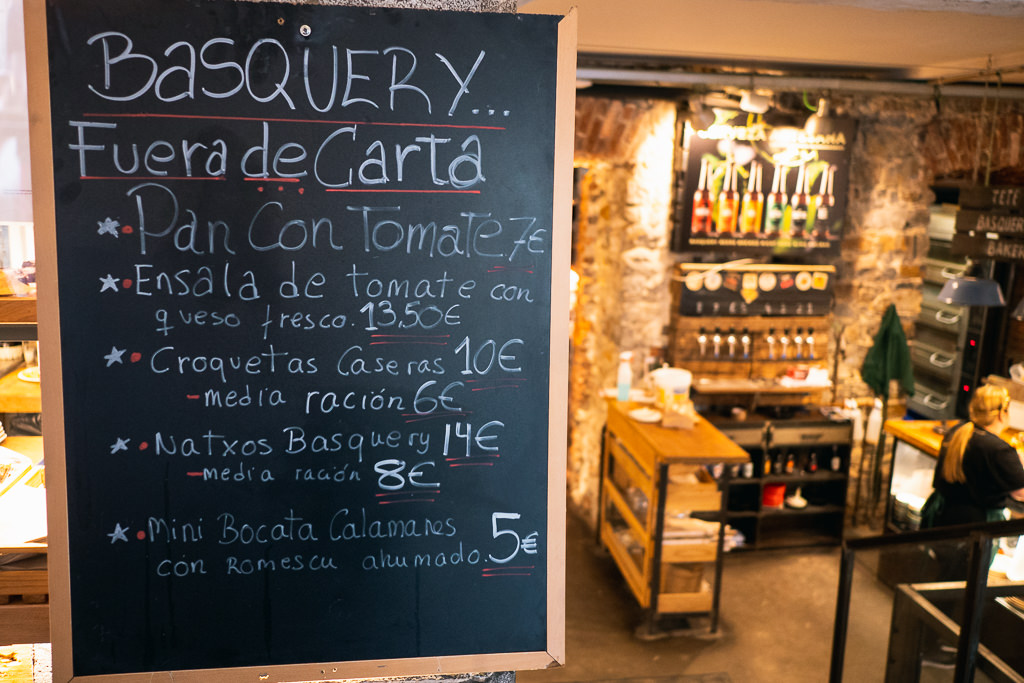 BASQUERY...
Fuera de Carta
Pan Con Tomate 7€
Ensala de tomate con
queso fresco. 13,50€
Croquetas Caseras 10€
- media ración 6€
Natxos Basquery 14€
- media ración 8€
Mini Bocata Calamares
con Romescu ahumado. 5€
TETE
BASQUERY
BAKERY